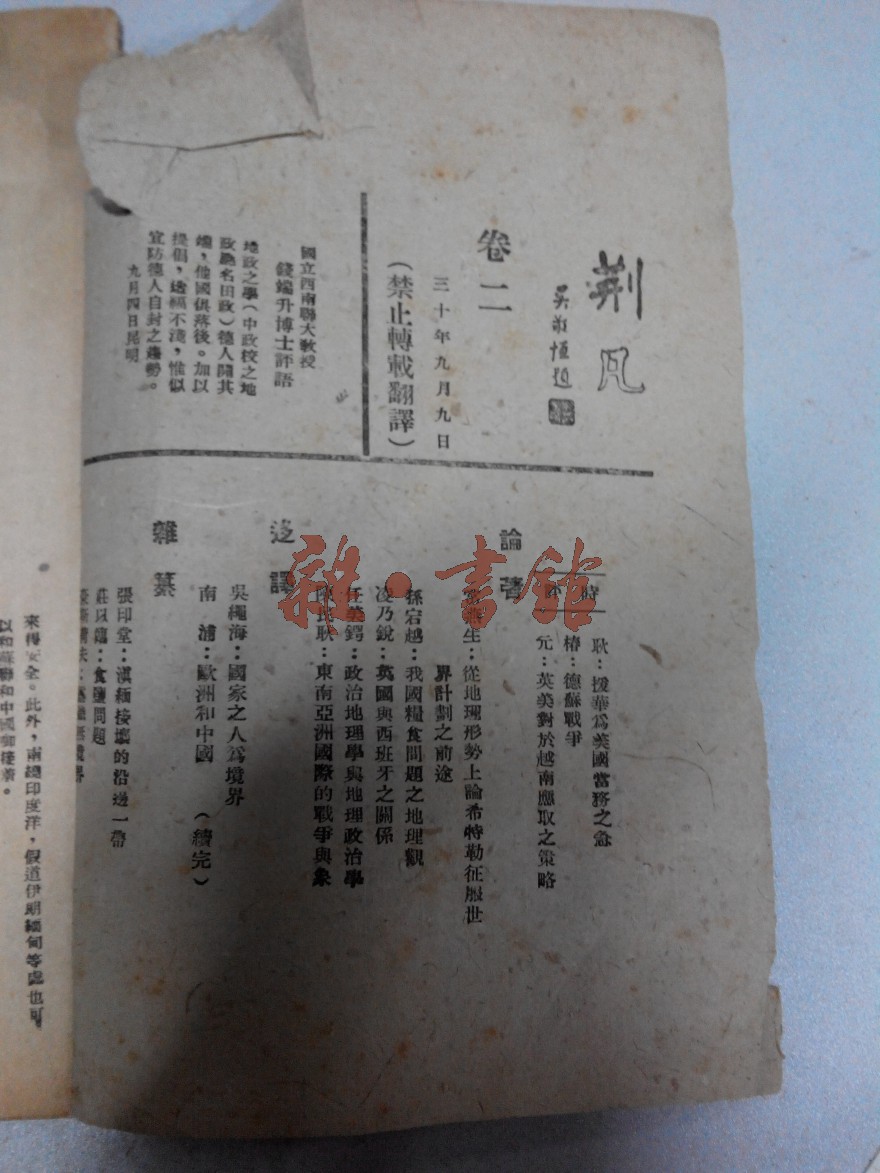 荆凡
吳敬恆題
卷二
三十年九月九日
(禁止轉載翻譯)
國立西南聯大教授
錢端升博士評語
地政之學(中政校之地
政學名田政)德人開其
端,他國俱落後。加以
提倡,造福不淺,惟似
宜防德人自封之趨勢。
九月四日昆明
時評
耿:援華爲美國當務之急
椿:德蘇戰爭
元:英美對於越南應取之策略
論著
生:從地理形勢上論希特勒征服世
界計劃之前途
孫宕越:我國糧食問題之地理觀
凌乃銳:英國與西班牙之關係
任美鍔:政治地理學與地理政治學
陳民耿:東南亞洲國際的戰爭與象
迻譯
吳繩海:國家之人爲境界
南浦:歐洲和中國(續完)
雜纂
張印堂:滇緬接壤的沿邊一帶
莊以臨:食鹽問題
來得安全。此外,兩繞印度洋,假道伊朗緬甸等處也可
以和蘇聯和中國銜接着。
雜·書館